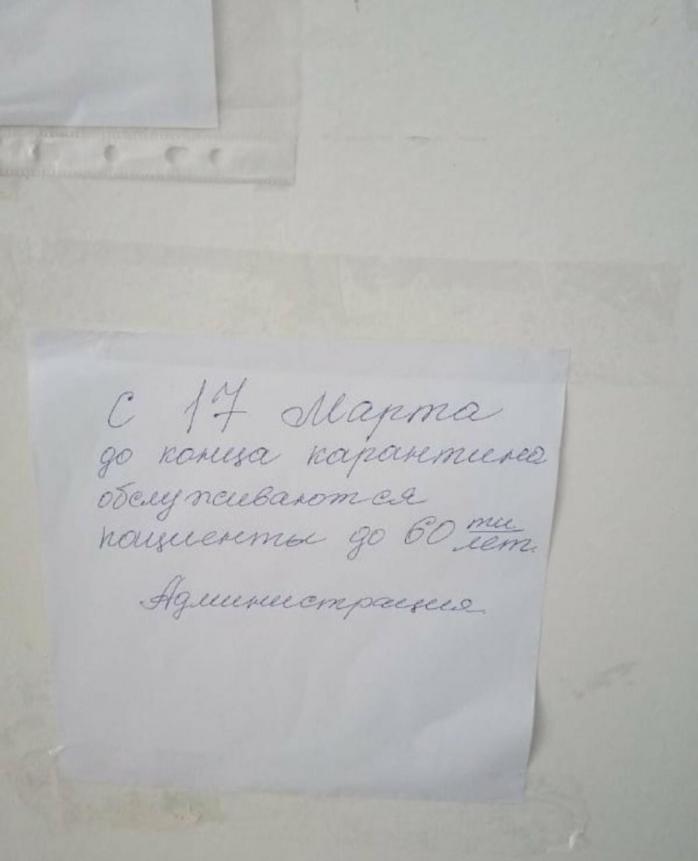 С 17 Марта
до конца карантина
обслуживаются
пациенты до 60 ти лет.
Администрация